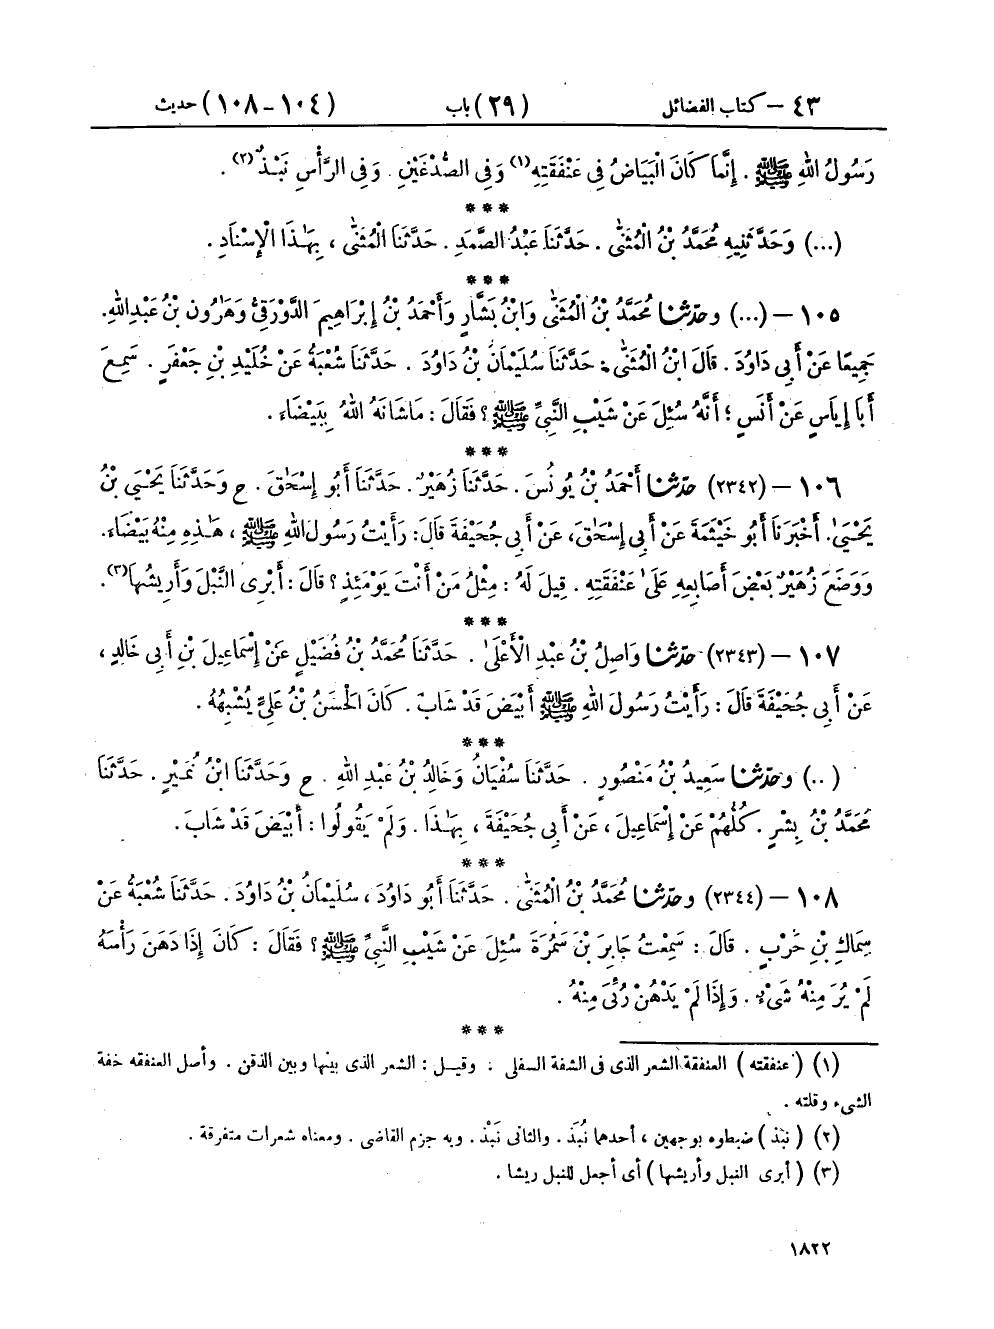 ٤٣ – كتاب الفضائل (٢٩) باب (١٠٤ - ١٠٨) حديث
رَسُولُ اللهِ ﷺ . إِنَّمَا كَانَ الْبَيَاضُ فِي عَنْفَقَتِهِ(١) وَفِي الصُّدْغَيْنِ . وَفِي الرَّأْسِ نَبْذٌ(٢) .
***
(...) وَحَدَّثَنِيهِ مُحَمَّدُ بْنُ الْمُثَنَّى . حَدَّثَنَا عَبْدُ الصَّمَدِ . حَدَّثَنَا الْمُثَنَّى ، بِهَٰذَا الْإِسْنَادِ .
***
١٠٥ – (...) وحدّثنا مُحَمَّدُ بْنُ الْمُثَنَّى وَابْنُ بَشَّارٍ وَأَحْمَدُ بْنُ إِبْرَاهِيمَ الدَّوْرَقِيُّ وَهَٰرُونُ بْنُ عَبْدِ اللهِ.
جَمِيعًا عَنْ أَبِي دَاوُدَ . قَالَ ابْنُ الْمُثَنَّى: حَدَّثَنَا سُلَيْمَانُ بْنُ دَاوُدَ . حَدَّثَنَا شُعْبَةُ عَنْ خُلَيْدِ بْنِ جَعْفَرٍ . سَمِعَ
أَبَا إِيَاسٍ عَنْ أَنَسٍ ؛ أَنَّهُ سُئِلَ عَنْ شَيْبِ النَّبِيِّ ﷺ ؟ فَقَالَ : مَا شَانَهُ اللهُ بِبَيْضَاءَ .
***
١٠٦ – (٢٣٤٢) حدّثنا أَحْمَدُ بْنُ يُونُسَ . حَدَّثَنَا زُهَيْرٌ . حَدَّثَنَا أَبُو إِسْحَٰقَ . ح وَحَدَّثَنَا يَحْيَىٰ بْنُ
يَحْيَىٰ. أَخْبَرَنَا أَبُو خَيْثَمَةَ عَنْ أَبِي إِسْحَٰقَ، عَنْ أَبِي جُحَيْفَةَ قَالَ: رَأَيْتُ رَسُولَ اللهِ ﷺ ، هَٰذِهِ مِنْهُ بَيْضَاءَ.
وَوَضَعَ زُهَيْرٌ بَعْضَ أَصَابِعِهِ عَلَىٰ عَنْفَقَتِهِ . قِيلَ لَهُ : مِثْلُ مَنْ أَنْتَ يَوْمَئِذٍ ؟ قَالَ : أَبْرِي النَّبْلَ وَأَرِيشُهَا(٣).
***
١٠٧ – (٢٣٤٣) حدّثنا وَاصِلُ بْنُ عَبْدِ الْأَعْلَىٰ . حَدَّثَنَا مُحَمَّدُ بْنُ فُضَيْلٍ عَنْ إِسْمَاعِيلَ بْنِ أَبِي خَالِدٍ ،
عَنْ أَبِي جُحَيْفَةَ قَالَ : رَأَيْتُ رَسُولَ اللهِ ﷺ أَبْيَضَ قَدْ شَابَ . كَانَ الْحَسَنُ بْنُ عَلِيٍّ يُشْبِهُهُ .
***
(..) وحدّثنا سَعِيدُ بْنُ مَنْصُورٍ . حَدَّثَنَا سُفْيَانُ وَخَالِدُ بْنُ عَبْدِ اللهِ . ح وَحَدَّثَنَا ابْنُ نُمَيْرٍ . حَدَّثَنَا
مُحَمَّدُ بْنُ بِشْرٍ . كُلُّهُمْ عَنْ إِسْمَاعِيلَ ، عَنْ أَبِي جُحَيْفَةَ ، بِهَٰذَا . وَلَمْ يَقُولُوا : أَبْيَضَ قَدْ شَابَ .
***
١٠٨ – (٢٣٤٤) وحدّثنا مُحَمَّدُ بْنُ الْمُثَنَّى . حَدَّثَنَا أَبُو دَاوُدَ ، سُلَيْمَانُ بْنُ دَاوُدَ . حَدَّثَنَا شُعْبَةُ عَنْ
سِمَاكِ بْنِ حَرْبٍ . قَالَ : سَمِعْتُ جَابِرَ بْنَ سَمُرَةَ سُئِلَ عَنْ شَيْبِ النَّبِيِّ ﷺ ؟ فَقَالَ : كَانَ إِذَا دَهَنَ رَأْسَهُ
لَمْ يُرَ مِنْهُ شَيْءٌ . وَإِذَا لَمْ يَدْهُنْ رُئِيَ مِنْهُ .
***
(١) (عنفقته) العنفقة الشعر الذى فى الشفة السفلى . وقيل : الشعر الذى بينها وبين الذقن . وأصل العنفقه خفة
الشىء وقلته .
(٢) (نبذ) ضبطوه بوجهين ، أحدهما نُبَذ . والثانى نَبْذ . وبه جزم القاضى . ومعناه شعرات متفرقة .
(٣) (أبرى النبل وأريشها) أى أجعل للنبل ريشا .
١٨٢٢